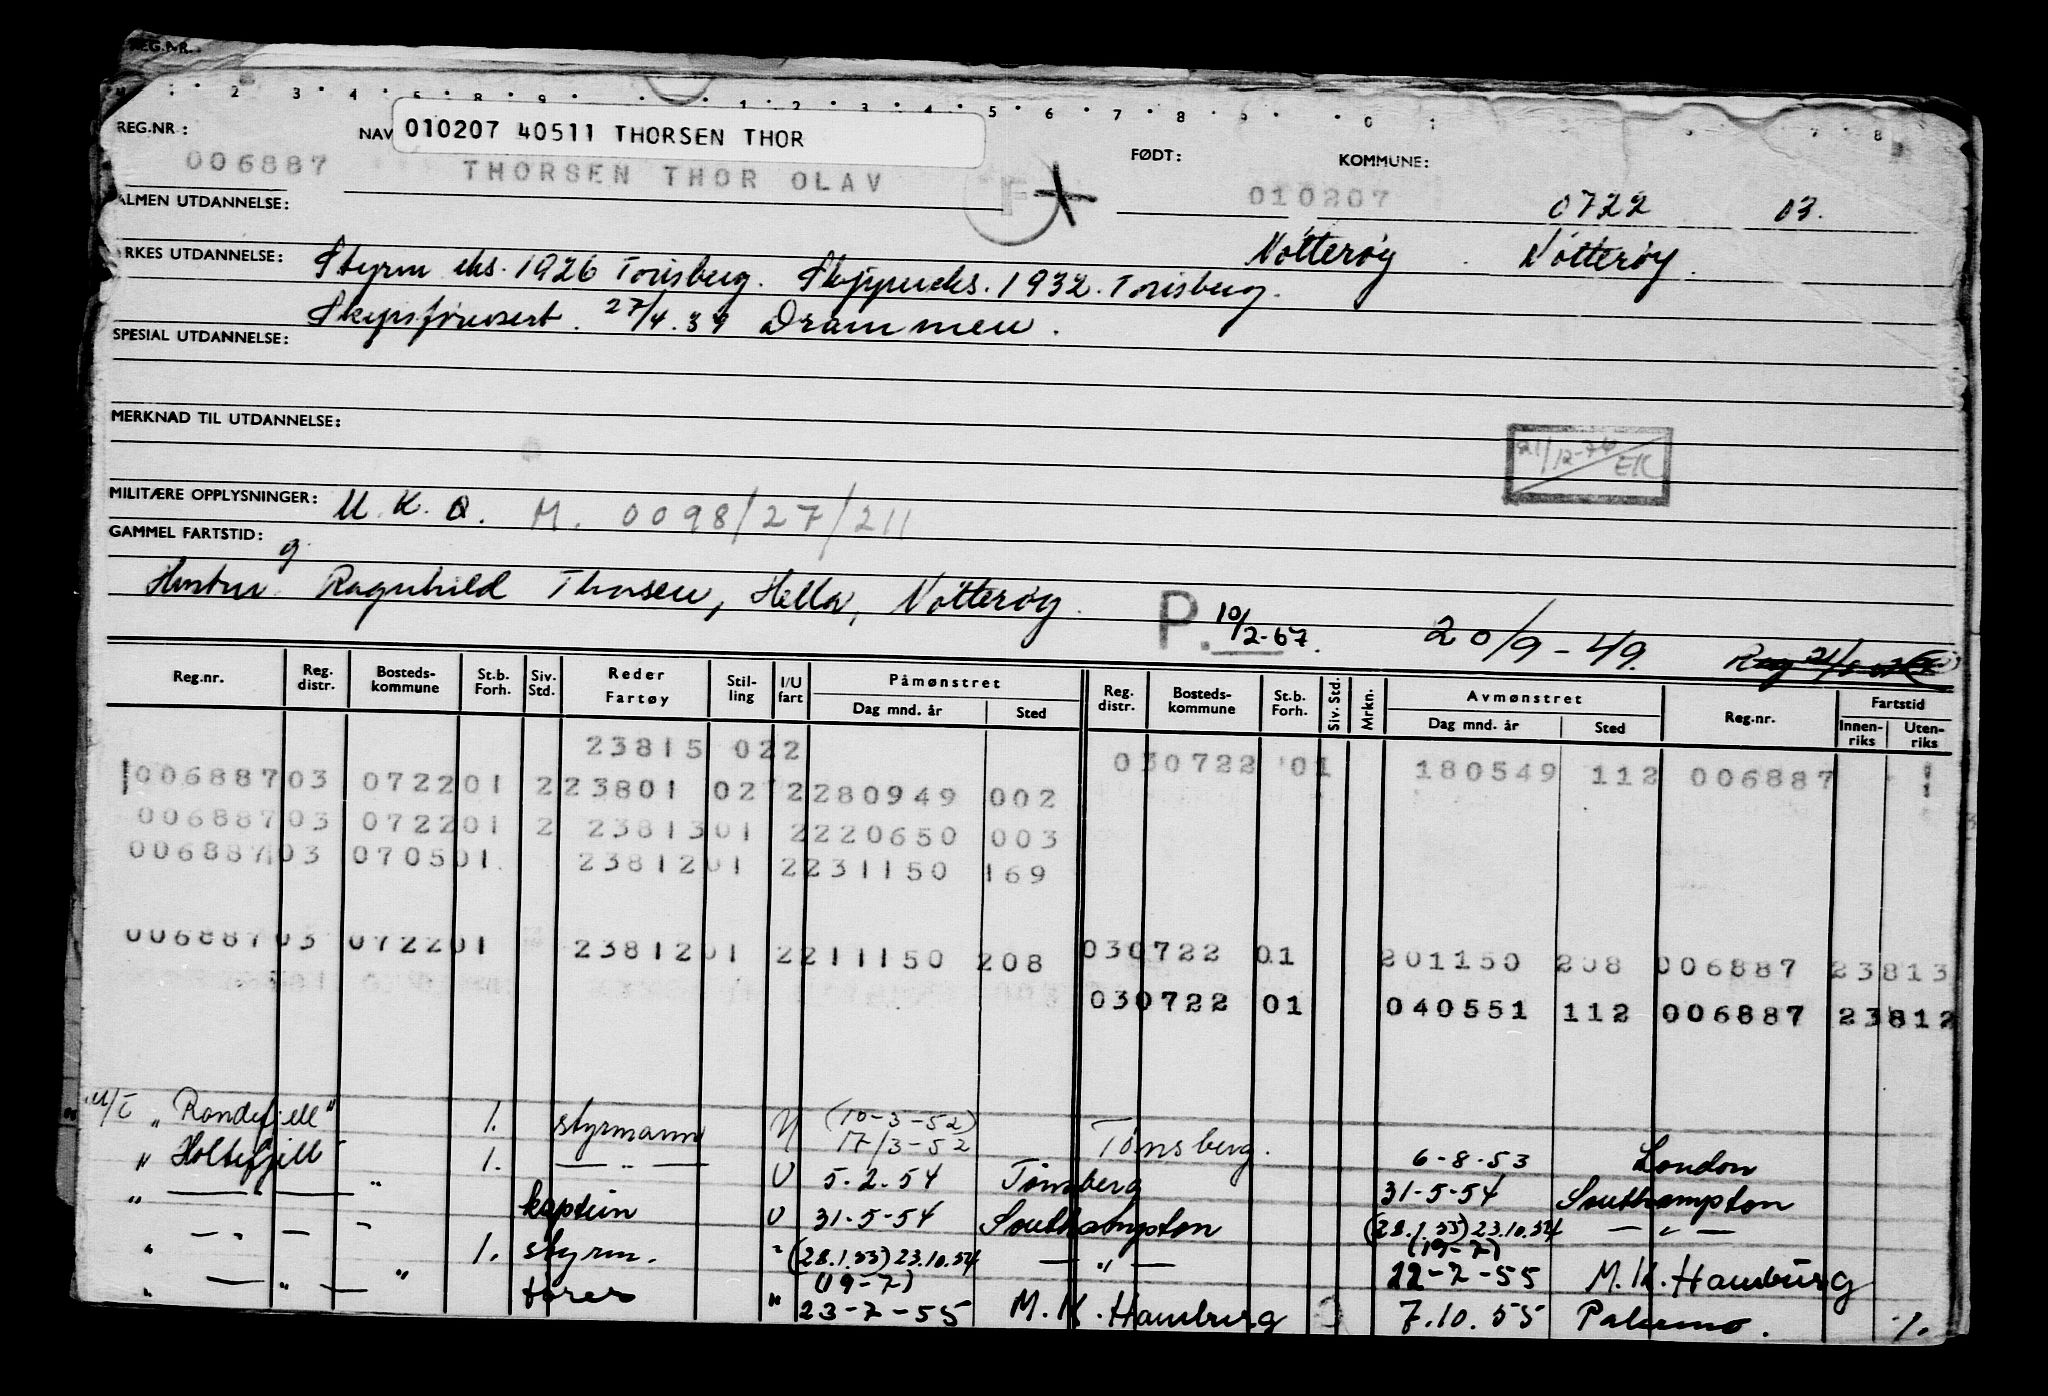 REG.NR.
REG.NR.: NAV 010207 40511 THORSEN THOR FØDT: KOMMUNE:
006887 THORSEN THOR OLAV F 010207 0722 03.
ALMEN UTDANNELSE: Nötterøy Nötterøy.
YRKES UTDANNELSE: Styrm eks. 1926 Tønsberg. Skippereks. 1932. Tønsberg.
Skipsførersert. 27/4.39 Drammen.
SPESIAL UTDANNELSE:
MERKNAD TIL UTDANNELSE:
21/12-74 EK
MILITÆRE OPPLYSNINGER: U.K.Q. M. 0098/27/211
GAMMEL FARTSTID:
g.
Hustru Ragnhild Thorsen, Hella, Nötterøy.
P. 10/2-67. 20/9-49.
Reg.nr. Reg. distr. Bosteds-kommune St.b. Forh. Siv. Std. Reder Fartøy Stil-ling I/U fart Påmønstret Dag mnd. år Sted Reg. distr. Bosteds-kommune St.b. Forh. Siv. Std. Mrkn. Avmønstret Dag mnd. år Sted Reg.nr. Fartstid Innen-riks Uten-riks
23815 022 030722 01 180549 112 006887
006887 03 0722 01 2 23801 02 2 280949 002
006887 03 0722 01 2 23813 01 2 220650 003
006887 03 0705 01. 23812 01 2 231150 169
006887 03 0722 01 23812 01 2 211150 208 030722 01 201150 208 006887 23813
030722 01 040551 112 006887 23812
M/T "Rondefjell" 1. styrmann U (10-3-52) 17/3-52 Tønsberg. 6-8-53 London
" Holtefjell 1. — " — U 5-2-54 Tønsberg 31-5-54 Southampton
" — " — kaptein U 31-5-54 Southampton (28.1.55) 23.10.54 — " —
" — " — 1. styrm. " (28.1.55) 23.10.54 — " — (19-7) 22-7-55 M.K. Hamburg
" — " — fører " (19-7) 23-7-55 M.K. Hamburg 7.10.55 Palermo. 1/.